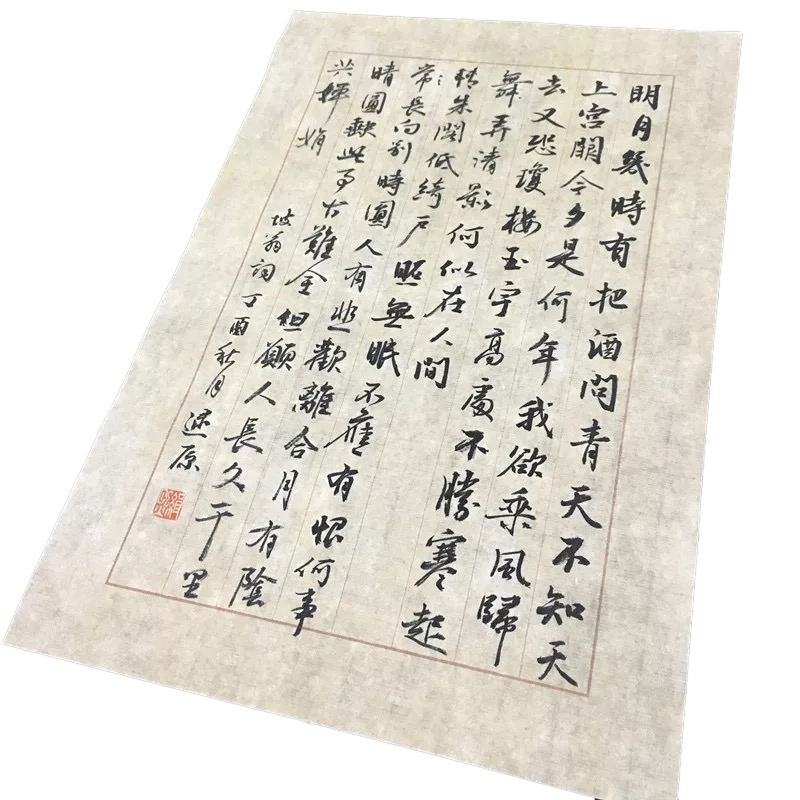 明月幾時有把酒問青天不知天
上宮闕今夕是何年我欲乘風歸
去又恐瓊楼玉宇高處不勝寒起
舞弄清影何似在人間
轉朱閣低綺戶照無眠不應有恨何事
常長向别時圓人有悲歡離合月有陰
晴圓缺此事古難全但願人長久千里
共嬋娟
坡翁詞丁酉秋月述原